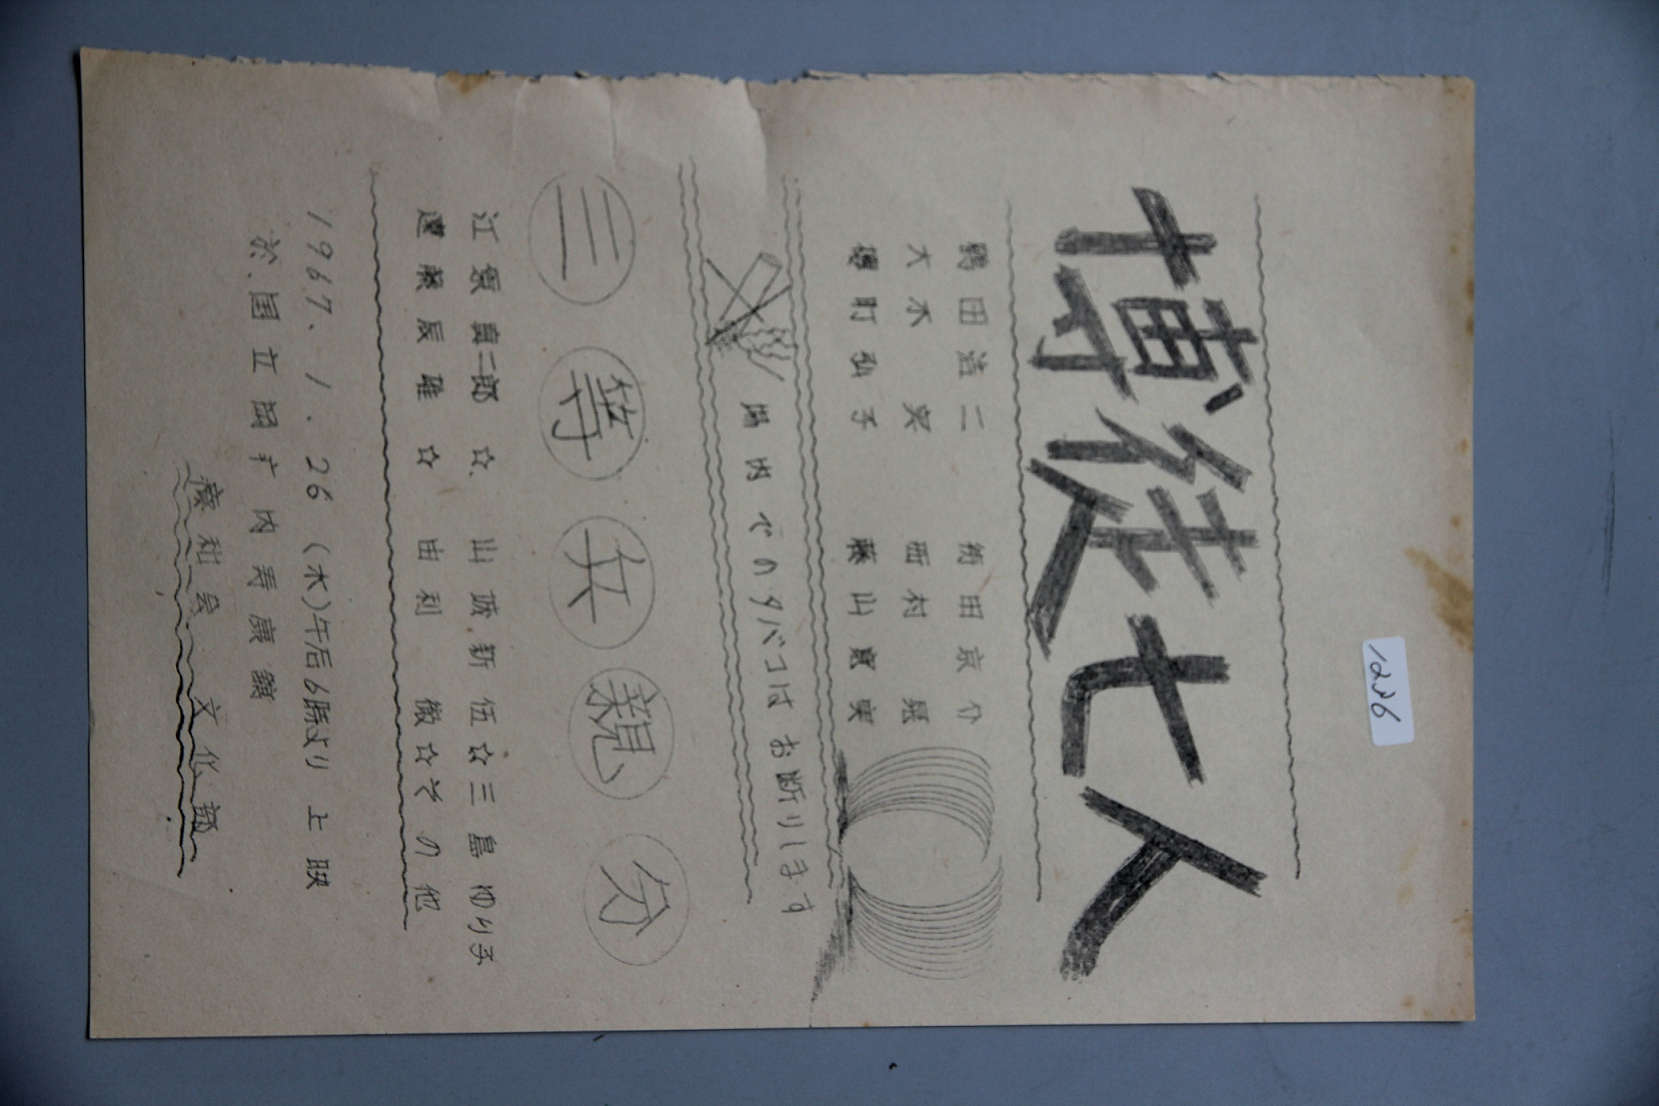 1226
博徒七人
鶴田浩二 待田京介
大木実 西村晃
櫻町弘子 藤山寛実
場内でのタバコはお断りします
三等兵親分
江原真二郎 ☆ 山城新伍 ☆ 三島ゆり子
遠藤辰雄 ☆ 由利徹 ☆ その他
1967、1.26(木)午后6時より 上映
於、国立 内寿康舘
和会 文化部